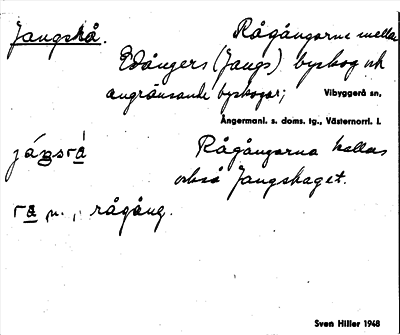 Jangsrå.
Rågångarne mellan
Edångers (Jangs) byskog och
angränsande byskogar;
Vibyggerå sn,
Ångermanl. s. doms. tg., Västernorrl. l.
Rågångarna kallas
också Jangshaget.
rå n., rågång.
Sven Hiller 1948